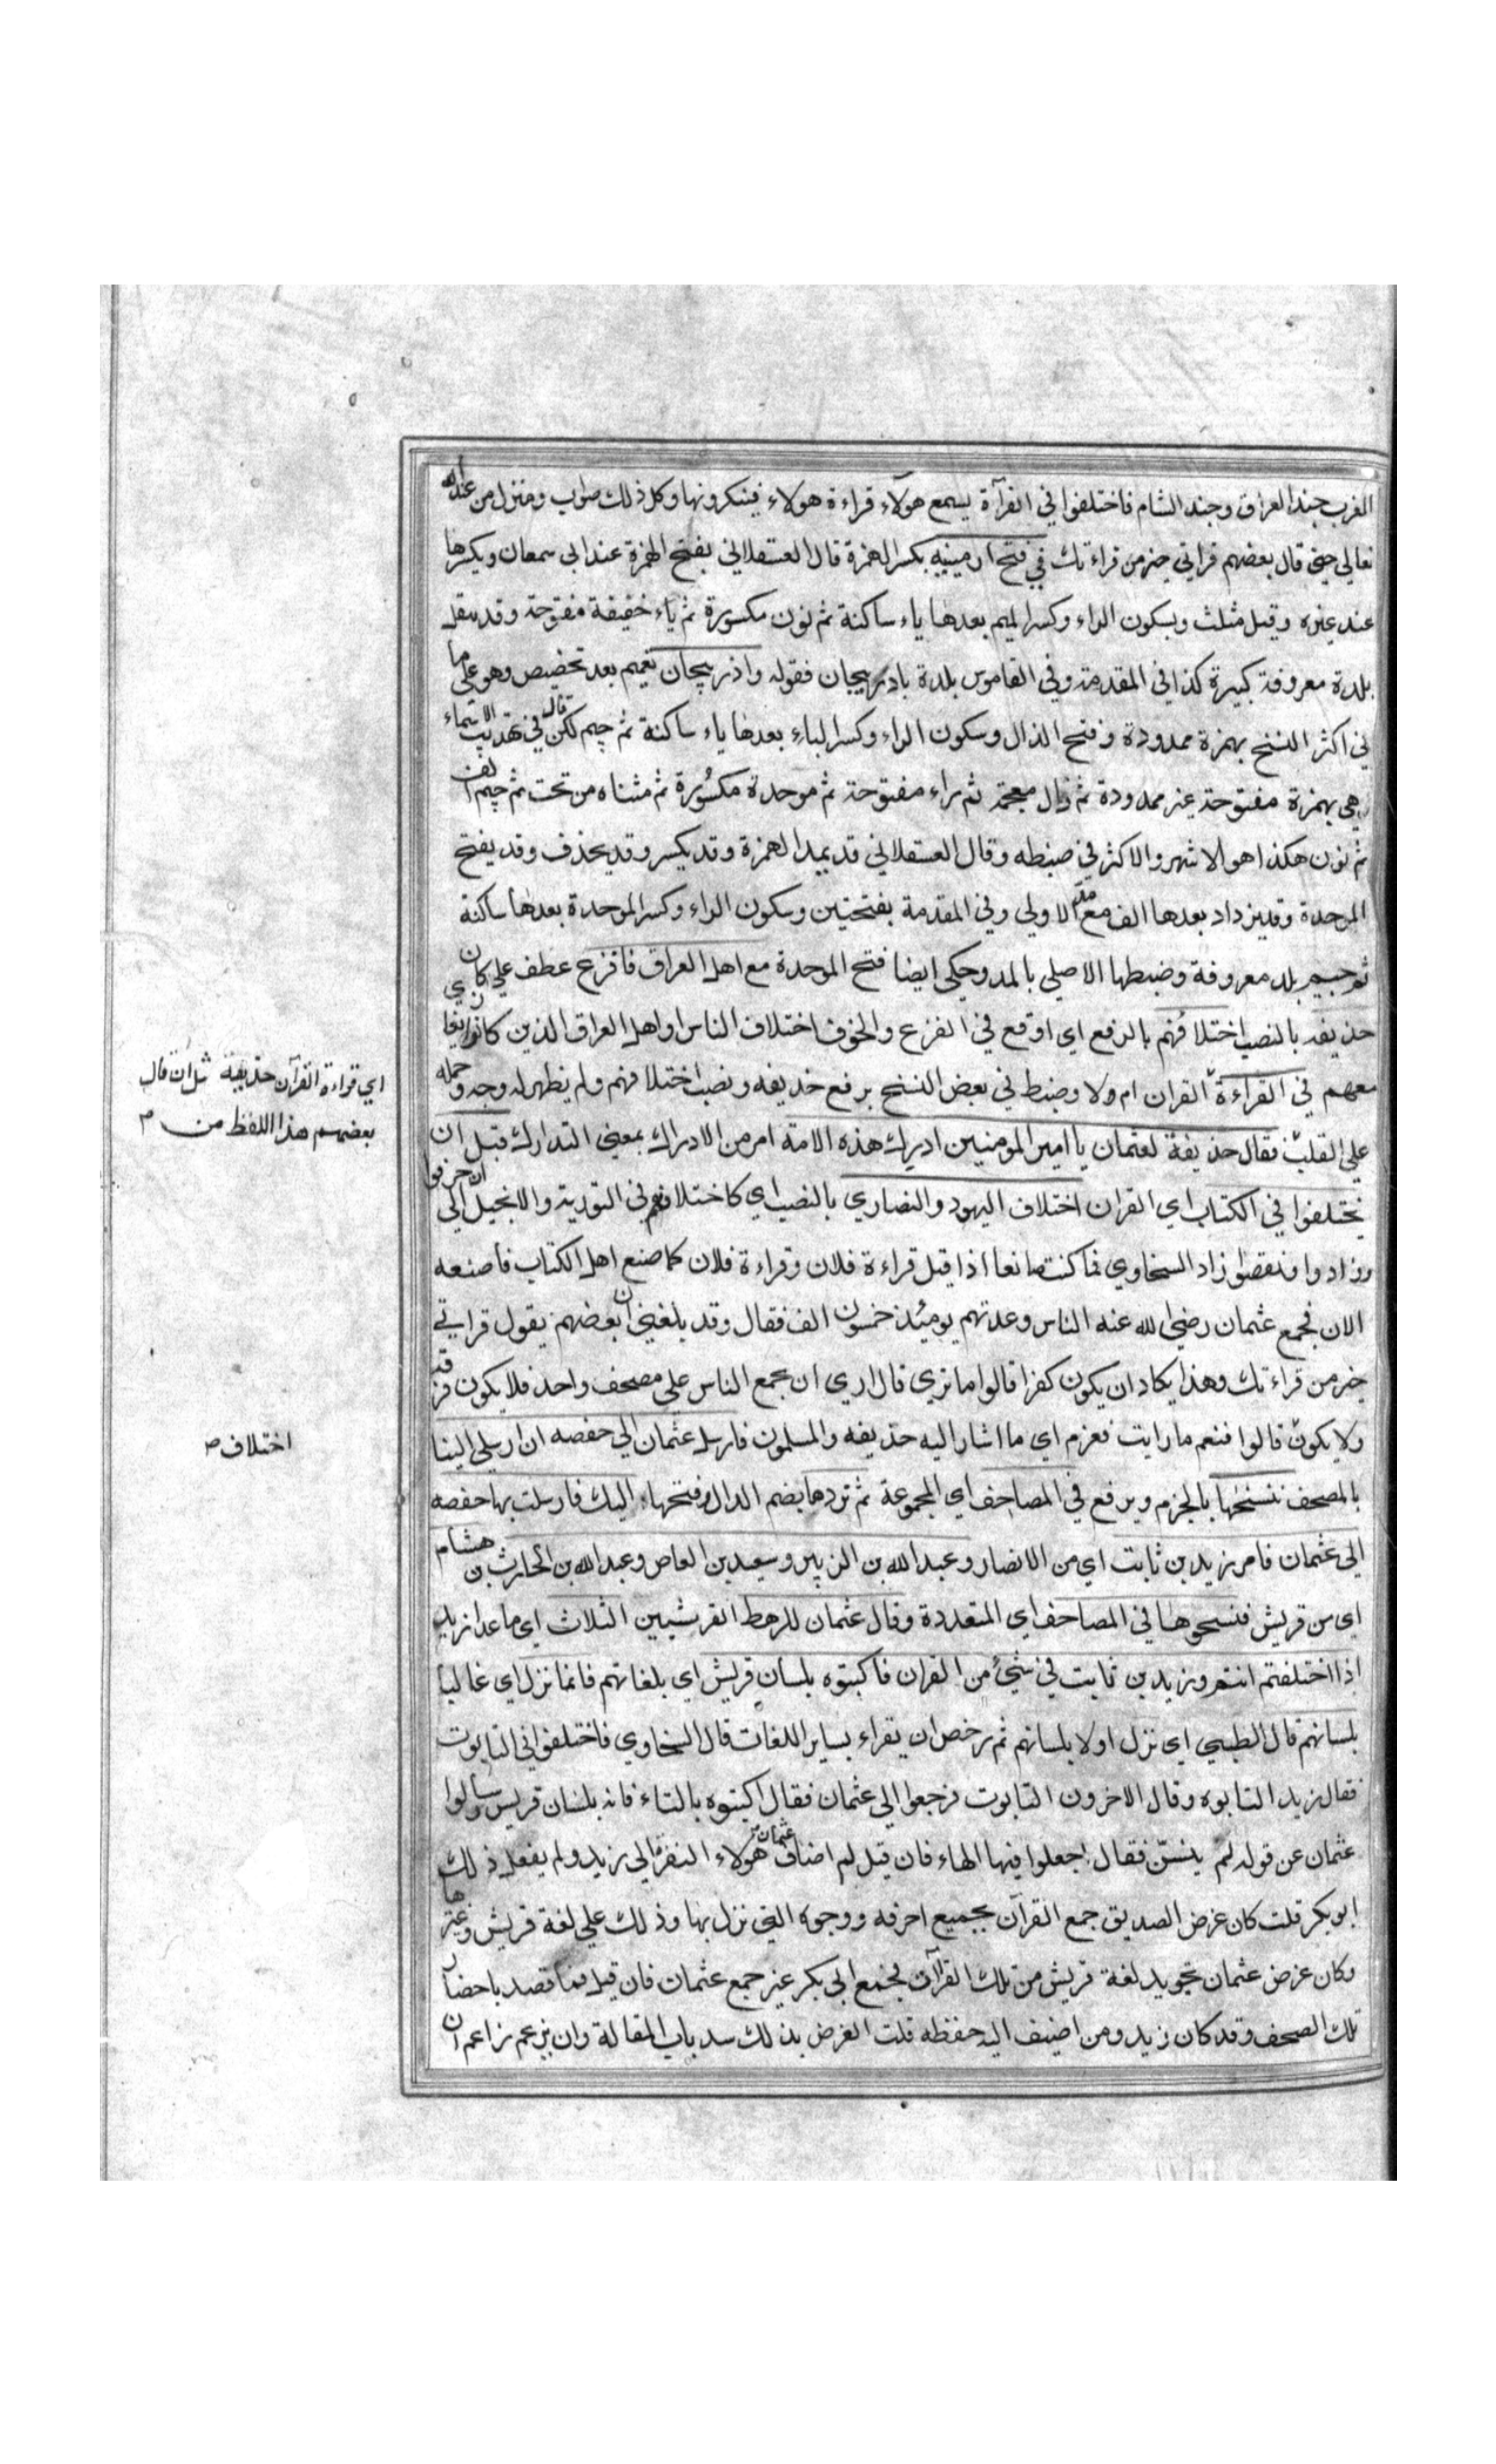 الغرب جند العراق وجند الشام فاختلفوا في القرآة يسمع هولآء قراءة هولاء فينكرونها وكل ذلك صواب ومنزل من عند الله
تعالي حتي قال بعضهم قراتي خير من قراءتك في فتح ارمينيه بكسر الهمزة قال العسقلاني بفتح الهمزة عند ابي سمعان وبكسرها
عند غيره وقيل مثلث وبسكون الراء وكسر الميم بعدها ياء ساكنة ثم نون مكسورة ثم ياء خفيفة مفتوحة وقد يثقل
بلدة معروفة كبيرة كذا في المقدمة وفي القاموس بلدة باذربيجان فقوله واذربيجان تعميم بعد تخصيص وهو علي ما
في اكثر النسخ بهمزة ممدودة وفتح الذال وسكون الراء وكسر الباء بعدها ياء ساكنة ثم جيم لكن قال في تهذيب الاسماء
هي بهمزة مفتوحة غير ممدودة ثم ذال معجمة ثم راء مفتوحة ثم موحدة مكسورة ثم مثناه من تحت ثم جيم الف
ثم نون هكذا هو الاشهر والاكثر في ضبطه وقال العسقلاني قد يمد الهمزة وقد يكسر وقد يحذف وقد يفتح
الموحدة وقد يزداد بعدها الف مع مد الاولي وفي المقدمة بفتحتين وسكون الراء وكسر الموحدة بعدها ساكنة
ثم جيم بلد معروفة وضبطها الاصلي بالمد وحكي ايضا فتح الموحدة مع اهل العراق فافزع عطف علي كان يغازي
حذيفه بالنصب اختلافهم بالرفع اي اوقع في الفزع والخوف اختلاف الناس او اهل العراق الذين كانوا
معهم في القراءة القران ام ولا وضبط في بعض النسخ برفع حذيفه ونصب اختلافهم ولم يظهر له وجه وحمله
علي القلب فقال حذيفة لعثمان يا امير المومنيين ادرك هذه الامة امر من الادراك بمعني التدارك قبل ان
يختلفوا في الكتاب اي القران اختلاف اليهود والنصاري بالنصب اي كاختلافهم في التورية والانجيل الي ان حرفوا
وزادوا ونقصوا زاد السخاوي فما كنت صانعا اذا قيل قراءة فلان وقراءة فلان كما صنع اهل الكتاب فاصنعه
الان فجمع عثمان رضي الله عنه الناس وعدتهم يومئذ خمسون الف فقال وقد بلغني ان بعضهم يقول قراتي
خير من قراءتك وهذا يكاد ان يكون كفرا قالوا ما تري قال اري ان نجمع الناس علي مصحف واحد فلا يكون فرقة
ولا يكون قالوا فنعم ما رايت فعزم اي ما اشار اليه حذيفه والمسلمون فارسل عثمان الي حفصه ان ارسلي الينا
بالمصحف ننسخها بالجزم ويرفع في المصاحف اي المجموعة ثم نردها بضم الدال وفتحها اليك فارسلت بها حفصه
الي عثمان فامر زيد بن ثابت اي من الانصار وعبد الله بن الزبير وسعيد بن العاص وعبد الله بن الحارث بن هشام
اي من قريش فنسخوها في المصاحف اي المتعددة وقال عثمان للرهط القرشيين الثلاث اي ما عدا زيد
اذا اختلفتم انتم وزيد بن ثابت في شيء من القران فاكتبوه بلسان قريش اي بلغاتهم فانما نزل اي غالبا
بلسانهم قال الطيبي اي نزل اولا بلسانهم ثم رخص ان يقراء بساير اللغات قال السخاوي فاختلفوا في التابوت
فقال زيد التابوه وقال الاخرون التابوت فرجعوا الي عثمان فقال اكتبوه بالتاء فانه بلسان قريش وسالوا
عثمان عن قوله لم يتسن فقال اجعلوا فيها الهاء فان قيل لم اضاف عثمان هولاء النفر الي زيد ولم يفعل ذلك
ابو بكر قلت كان غرض الصديق جمع القرآن بجميع احرفه ووجوه التي نزل بها وذلك علي لغة قريش وغيرها
وكان غرض عثمان تجويد لغة قريش من تلك القرآن فجمع ابي بكر غير جمع عثمان فان قيل فما قصد باحضار
تلك الصحف وقد كان زيد ومن اضيف اليه حفظه قلت الغرض بذلك سد باب المقالة وان يزعم زاعم ان
اي قراءة القرآن حذيفة مثل ان قال
بعضهم هذا اللفظ من
اختلاف